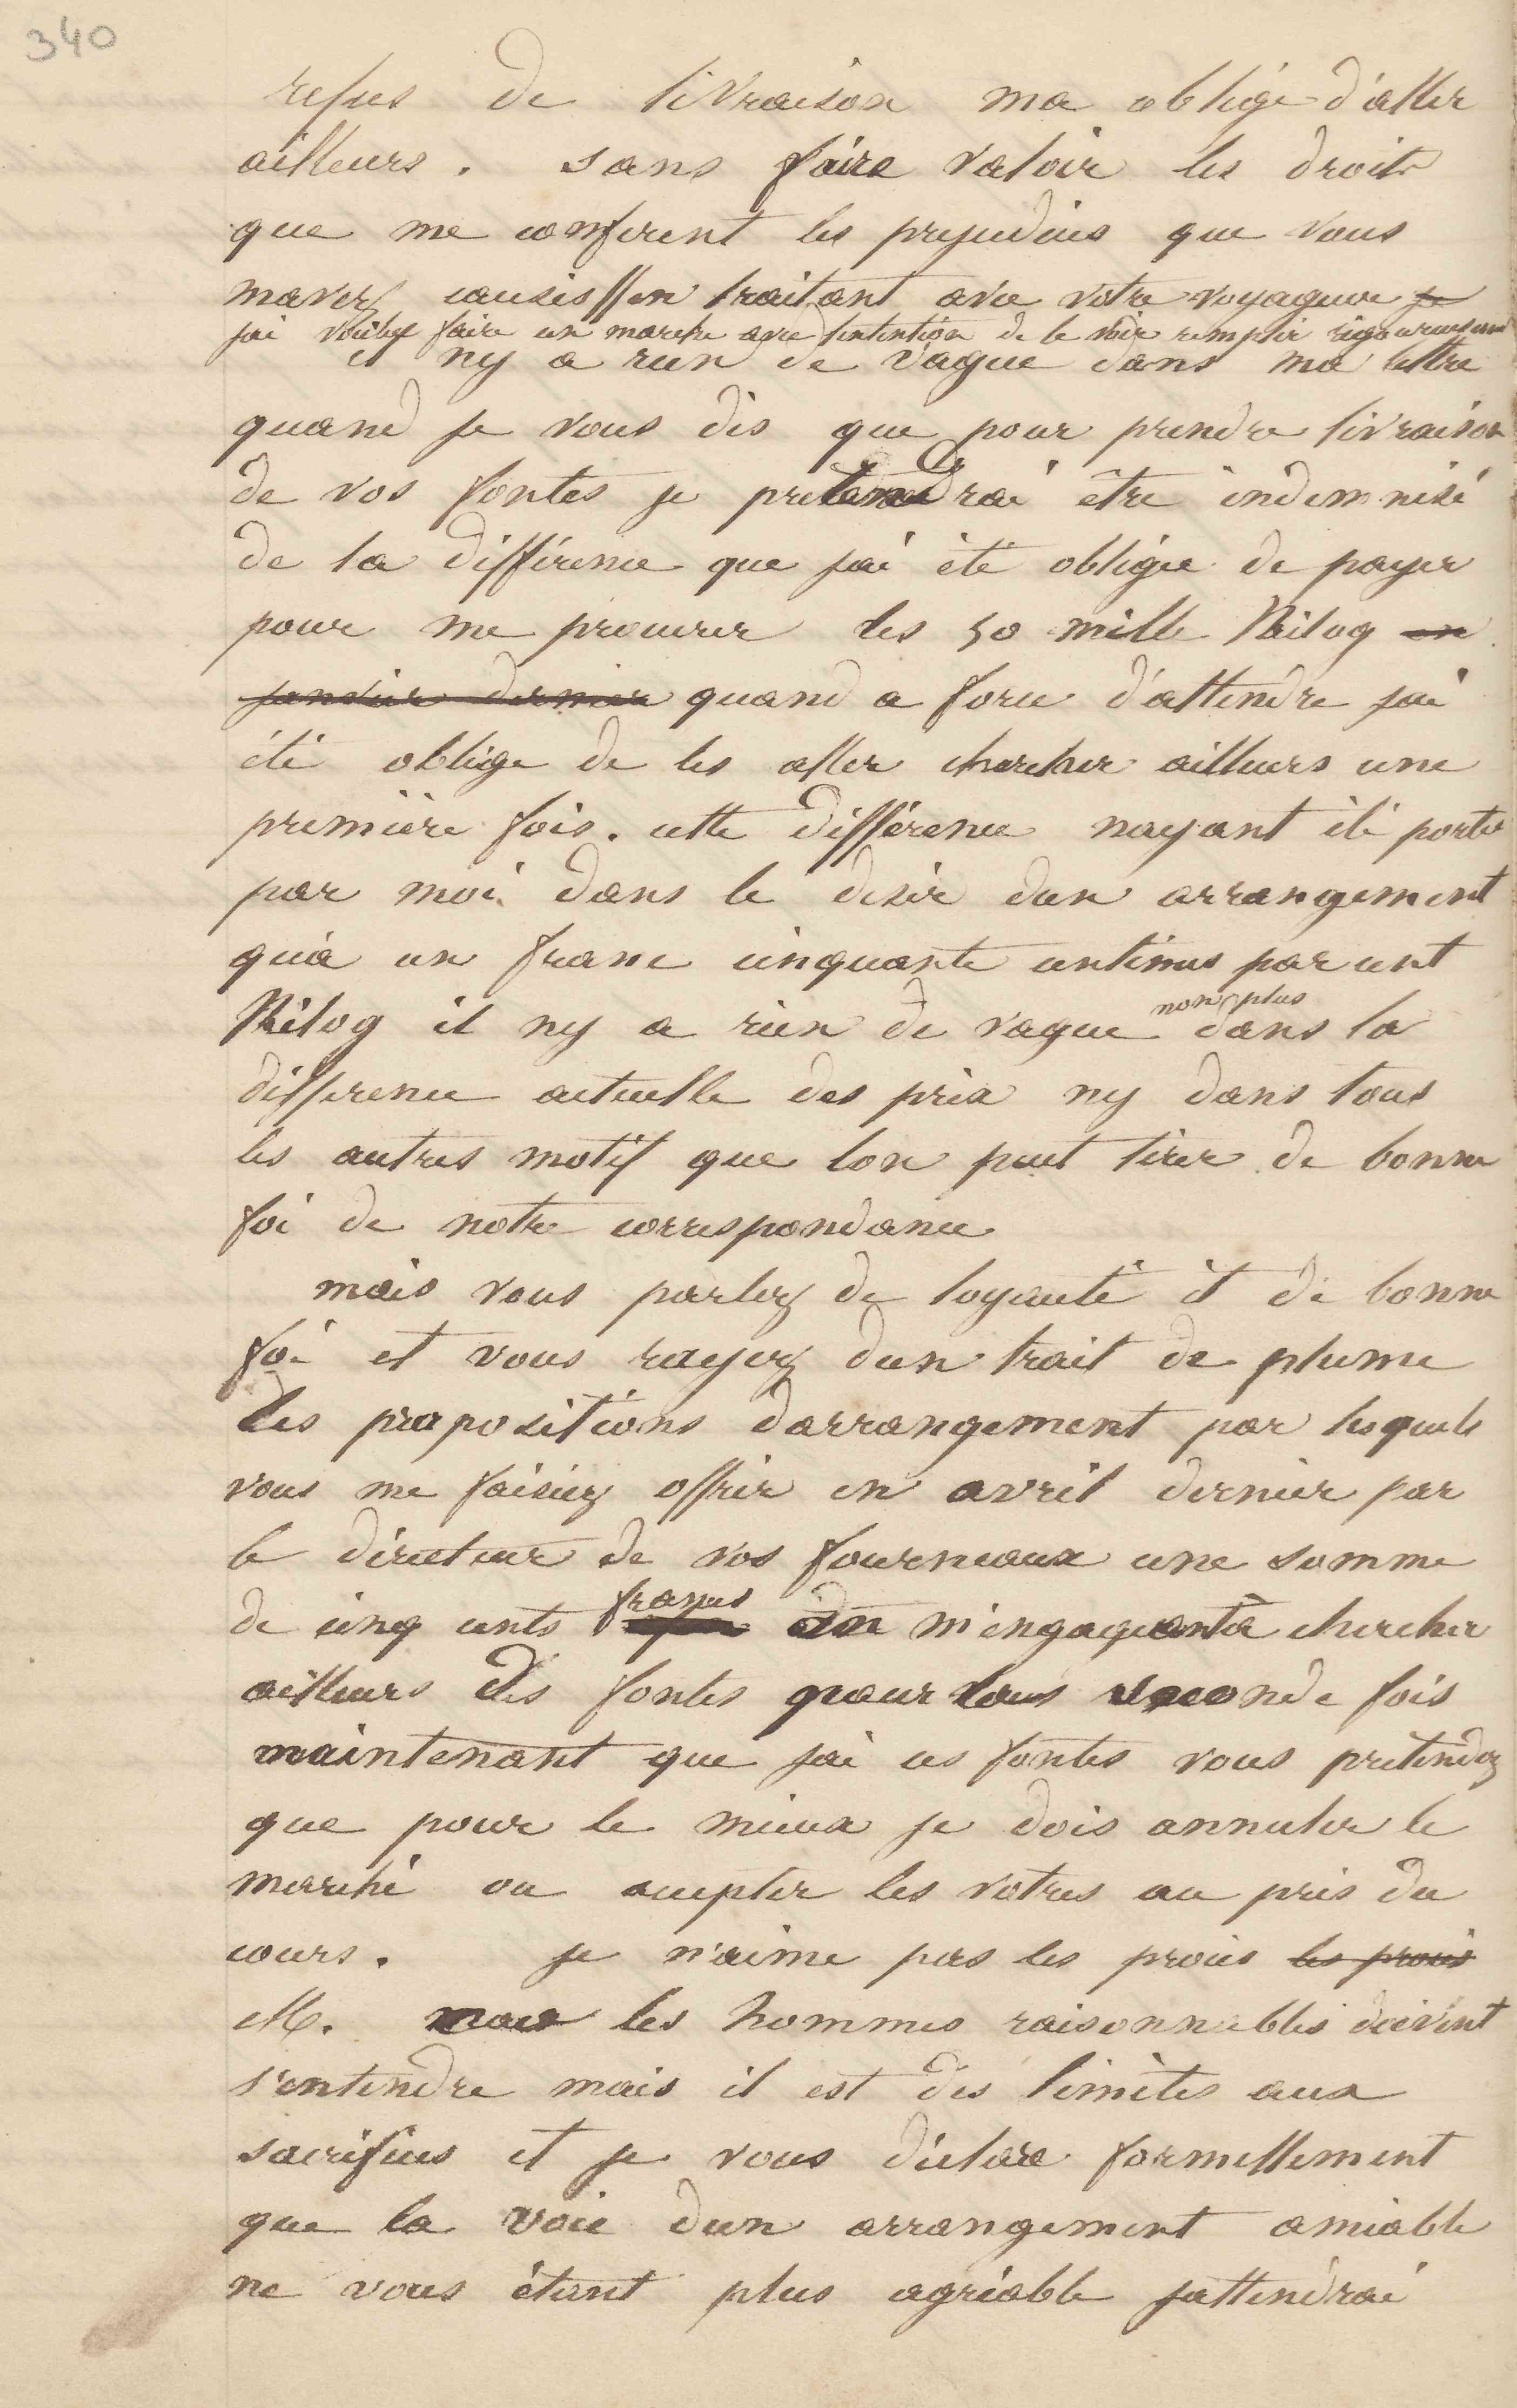 340
refus de livraison ma obligé d'aller
ailleurs. sans faire valoir les droits
que me conferent les prejudices que vous
mavez causés en traitant avec votre voyageur je
jai voulu faire un marche avec lintention de le voir remplir rigoureusement
il ny a rien de vague dans ma lettre
quand je vous dis que pour prendre livraison
de vos fontes je pretendrai être indemnisé
de la différence que jai été obligée de payer
pour me procurer les 50 mille Kilog en
janvier dernier quand a force d'attendre jai
été oblige de les aller chercher ailleurs une
première fois. cette différence nayant été portée
par moi dans le desir dun arrangement
quà un franc cinquante centimes par cent
Kilog il ny a rien de vague non plus dans la
difference actuelle des prix ny dans tous
les autres motif que lon peut tirer de bonne
foi de notre correspondance
mais vous parlez de loyauté et de bonne
foi et vous rayez dun trait de plume
les propositions darrangement par lesquels
vous me faisiez offrir en avril dernier par
le directeur de vos fourneaux une somme
de cinq cents francs en m'engageant à chercher
ailleurs des fontes pour seconde fois
maintenant que jai ces fontes vous pretendez
que pour le mieux je dois annuler le
marché ou accepter les votres au prix du
cours. je n'aime pas les procès les procès
M. les hommes raisonnables doivent
s'entendre mais il est des limites aux
sacrifices et je vous déclare formellement
que la voie dun arrangement amiable
ne vous étant plus agréable jattendrai